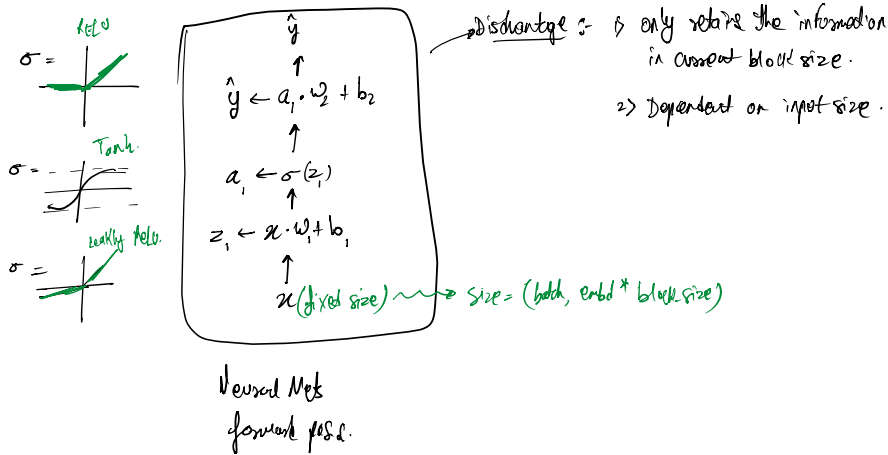 RELU
σ =
Tanh.
σ =
Leakly ReLU.
σ =
ŷ
ŷ ← a₁ · w₂ + b₂
a₁ ← σ(z₁)
z₁ ← x · w₁ + b₁
x (fixed size) → size = (batch, embd * block_size)
Neural Nets
forward pass.
Disadvantage :- 1) only retains the information
in current block size.
2) Dependent on input size.